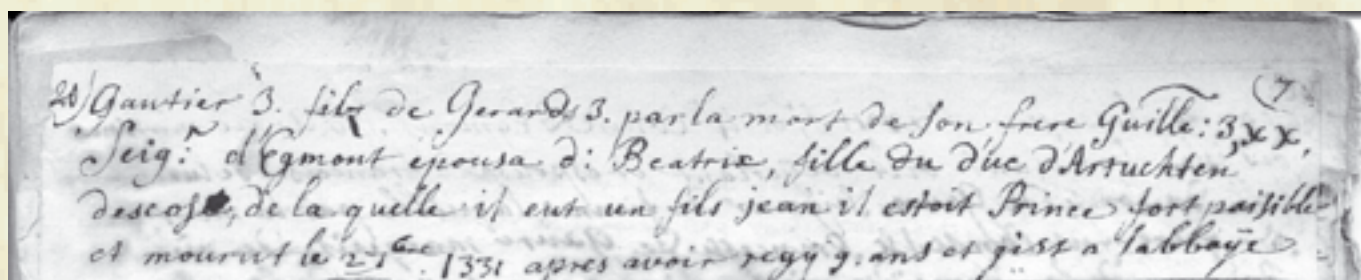 20) Gautier 3. fils de Gerard 3. par la mort de son frere Guille: 3, xx, (7
Seig:r d'Egmont épousa d: Beatrix, fille du duc d'Artuchten
descosse, de la quelle il eut un fils jean il estoit Prince fort paisible
et mourut le 1331 apres avoir regy 9. ans et gist a labbaÿe